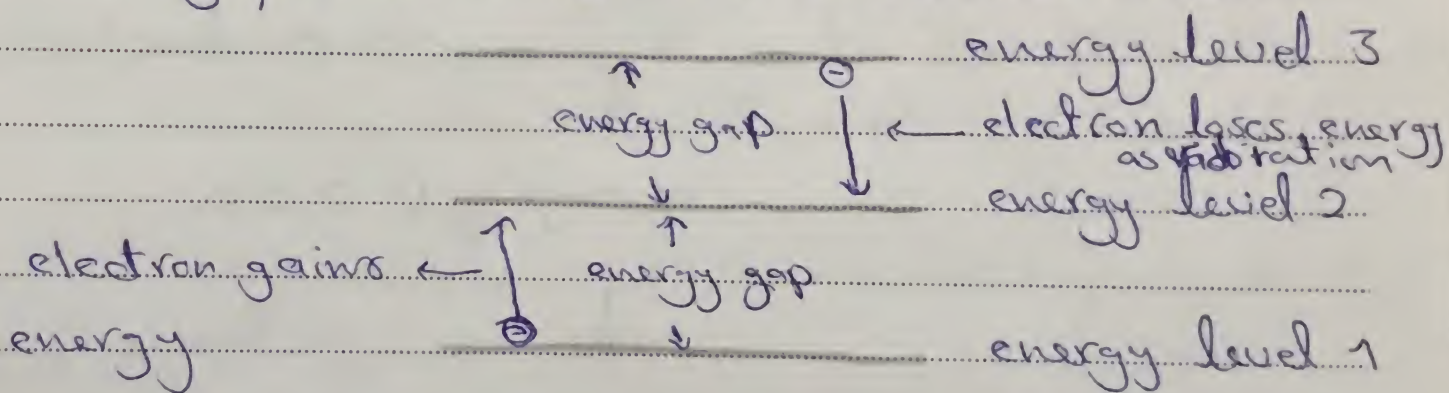 energy level 3
energy gap ← electron loses energy
as
energy level 2
electron gains ← energy gap
energy energy level 1